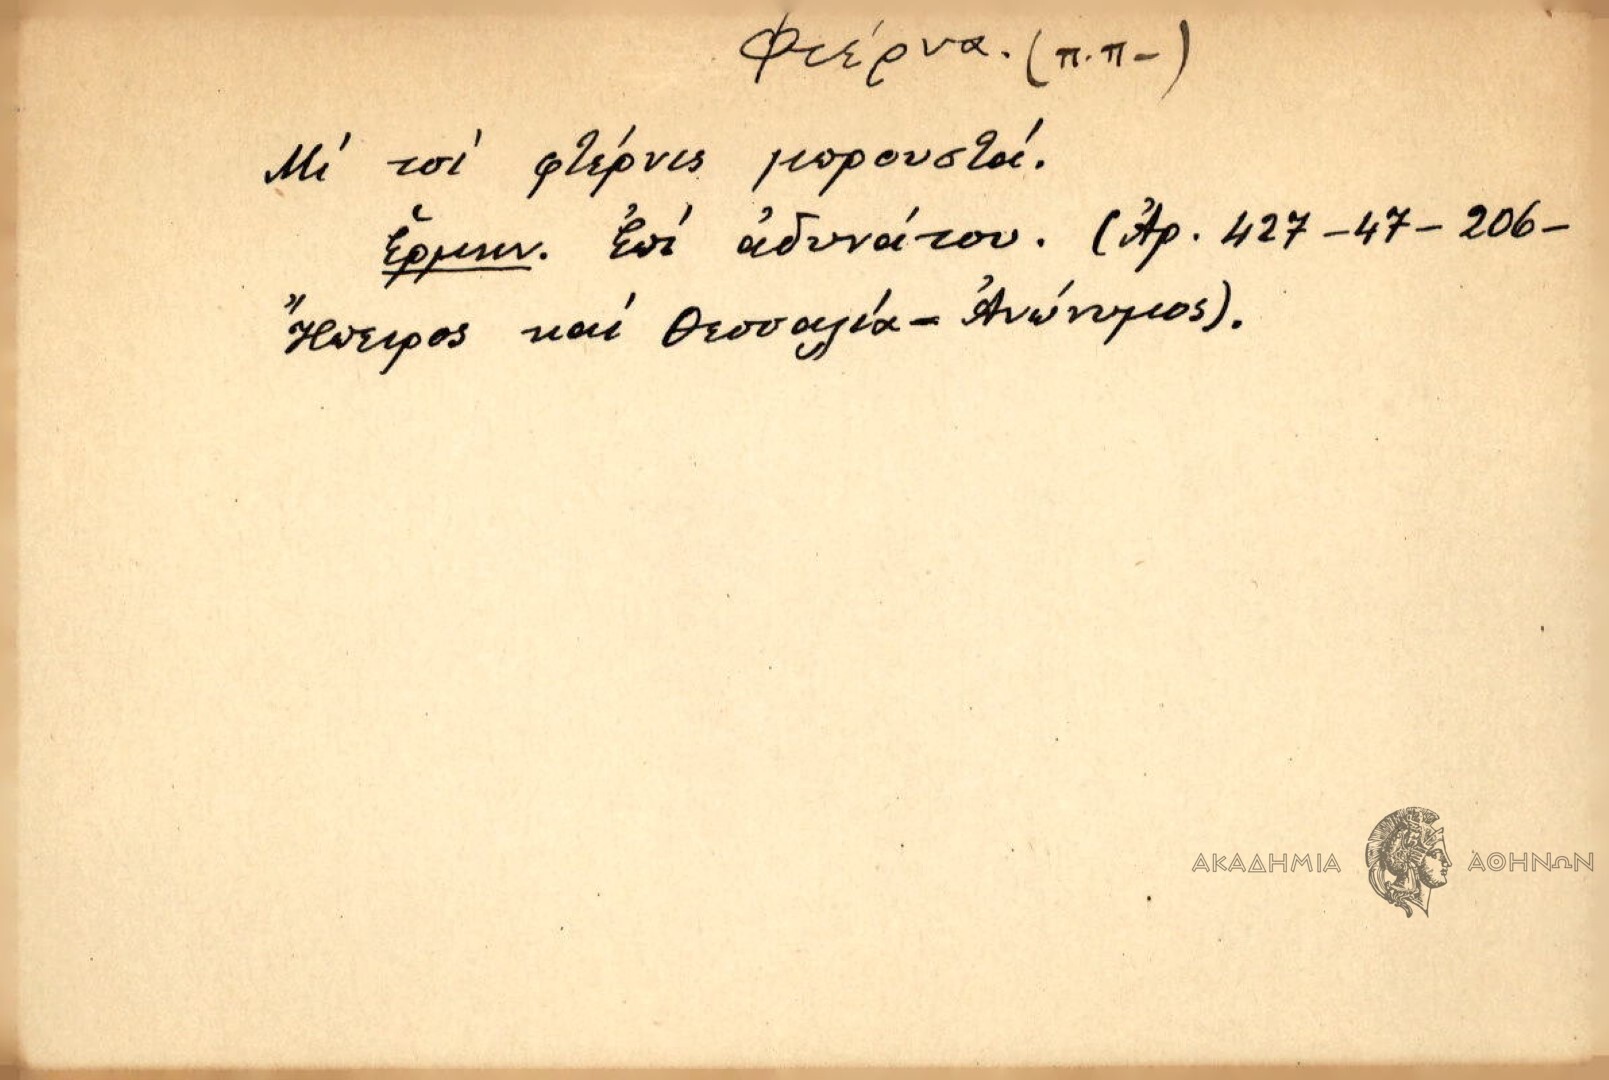 Φτέρνα. (π.π-)
Μί τσί φτέρνις μπρουστά.
Ἑρμην. Ἐπί ἀδυνάτου. (Ἀρ. 427-47-206-
Ἤπειρος καί Θεσσαλία- Ἀνώνυμος).
ΑΚΑΔΗΜΙΑ ΑΘΗΝΩΝ